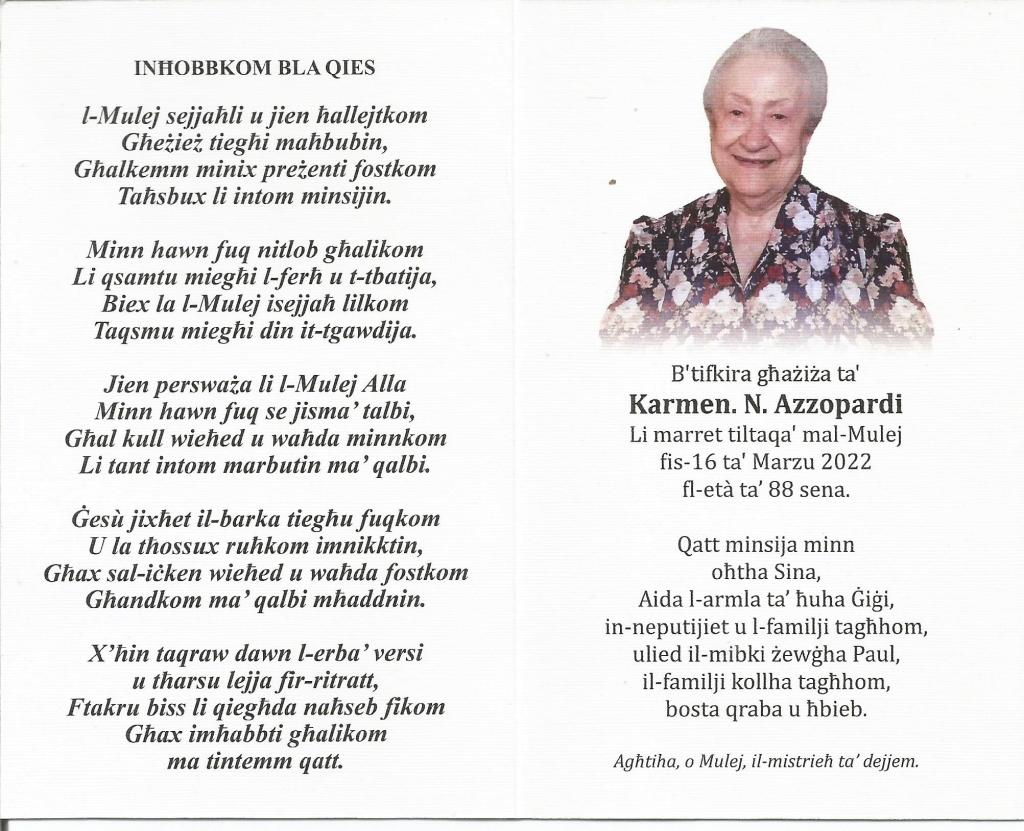 INĦOBBKOM BLA QIES
l-Mulej sejjaħli u jien ħallejtkom
Għeżież tiegħi maħbubin,
Għalkemm minix preżenti fostkom
Taħsbux li intom minsijin.
Minn hawn fuq nitlob għalikom
Li qsamtu miegħi l-ferħ u t-tbatija,
Biex la l-Mulej isejjaħ lilkom
Taqsmu miegħi din it-tgawdija.
Jien persważa li l-Mulej Alla
Minn hawn fuq se jisma’ talbi,
Għal kull wieħed u waħda minnkom
Li tant intom marbutin ma’ qalbi.
Ġesù jixħet il-barka tiegħu fuqkom
U la tħossux ruħkom imnikktin,
Għax sal-iċken wieħed u waħda fostkom
Għandkom ma’ qalbi mħaddnin.
X’ħin taqraw dawn l-erba’ versi
u tħarsu lejja fir-ritratt,
Ftakru biss li qiegħda naħseb fikom
Għax imħabbti għalikom
ma tintemm qatt.
B'tifkira għażiża ta'
Karmen. N. Azzopardi
Li marret tiltaqa' mal-Mulej
fis-16 ta' Marzu 2022
fl-età ta’ 88 sena.
Qatt minsija minn
oħtha Sina,
Aida l-armla ta’ ħuha Ġiġi,
in-neputijiet u l-familji tagħhom,
ulied il-mibki żewġha Paul,
il-familji kollha tagħhom,
bosta qraba u ħbieb.
Agħtiha, o Mulej, il-mistrieħ ta’ dejjem.